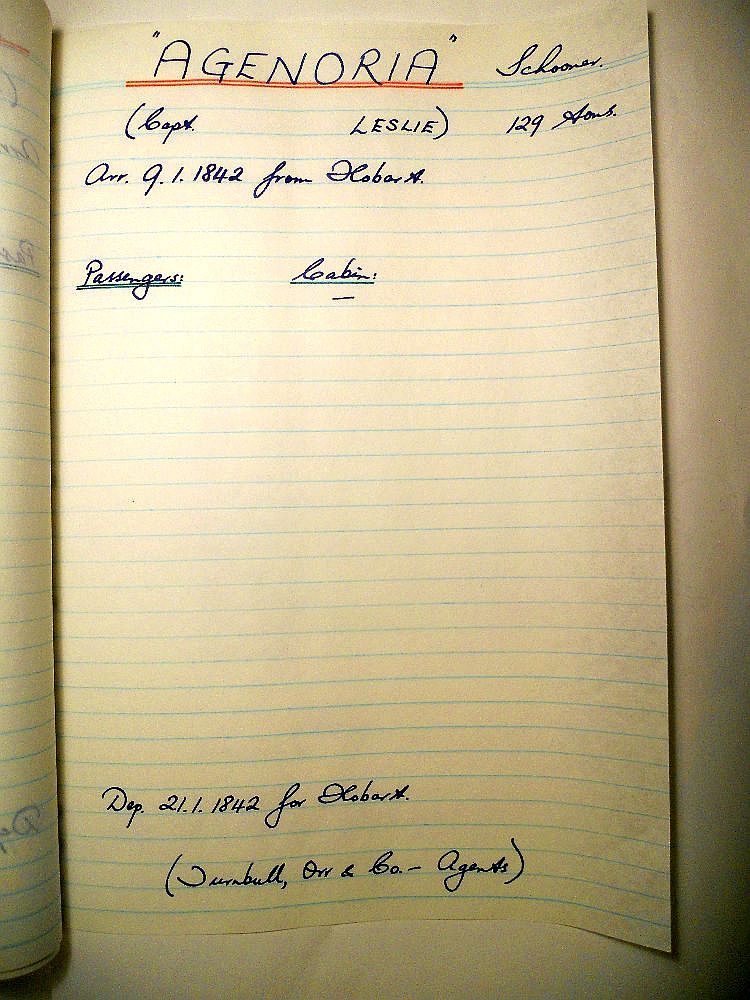 "AGENORIA" Schooner.
(Capt. LESLIE) 129 tons.
Arr. 9.1.1842 from Hobart.
Passengers: Cabin:
—
Dep. 21.1.1842 for Hobart.
(Turnbull, Orr & Co. – Agents)